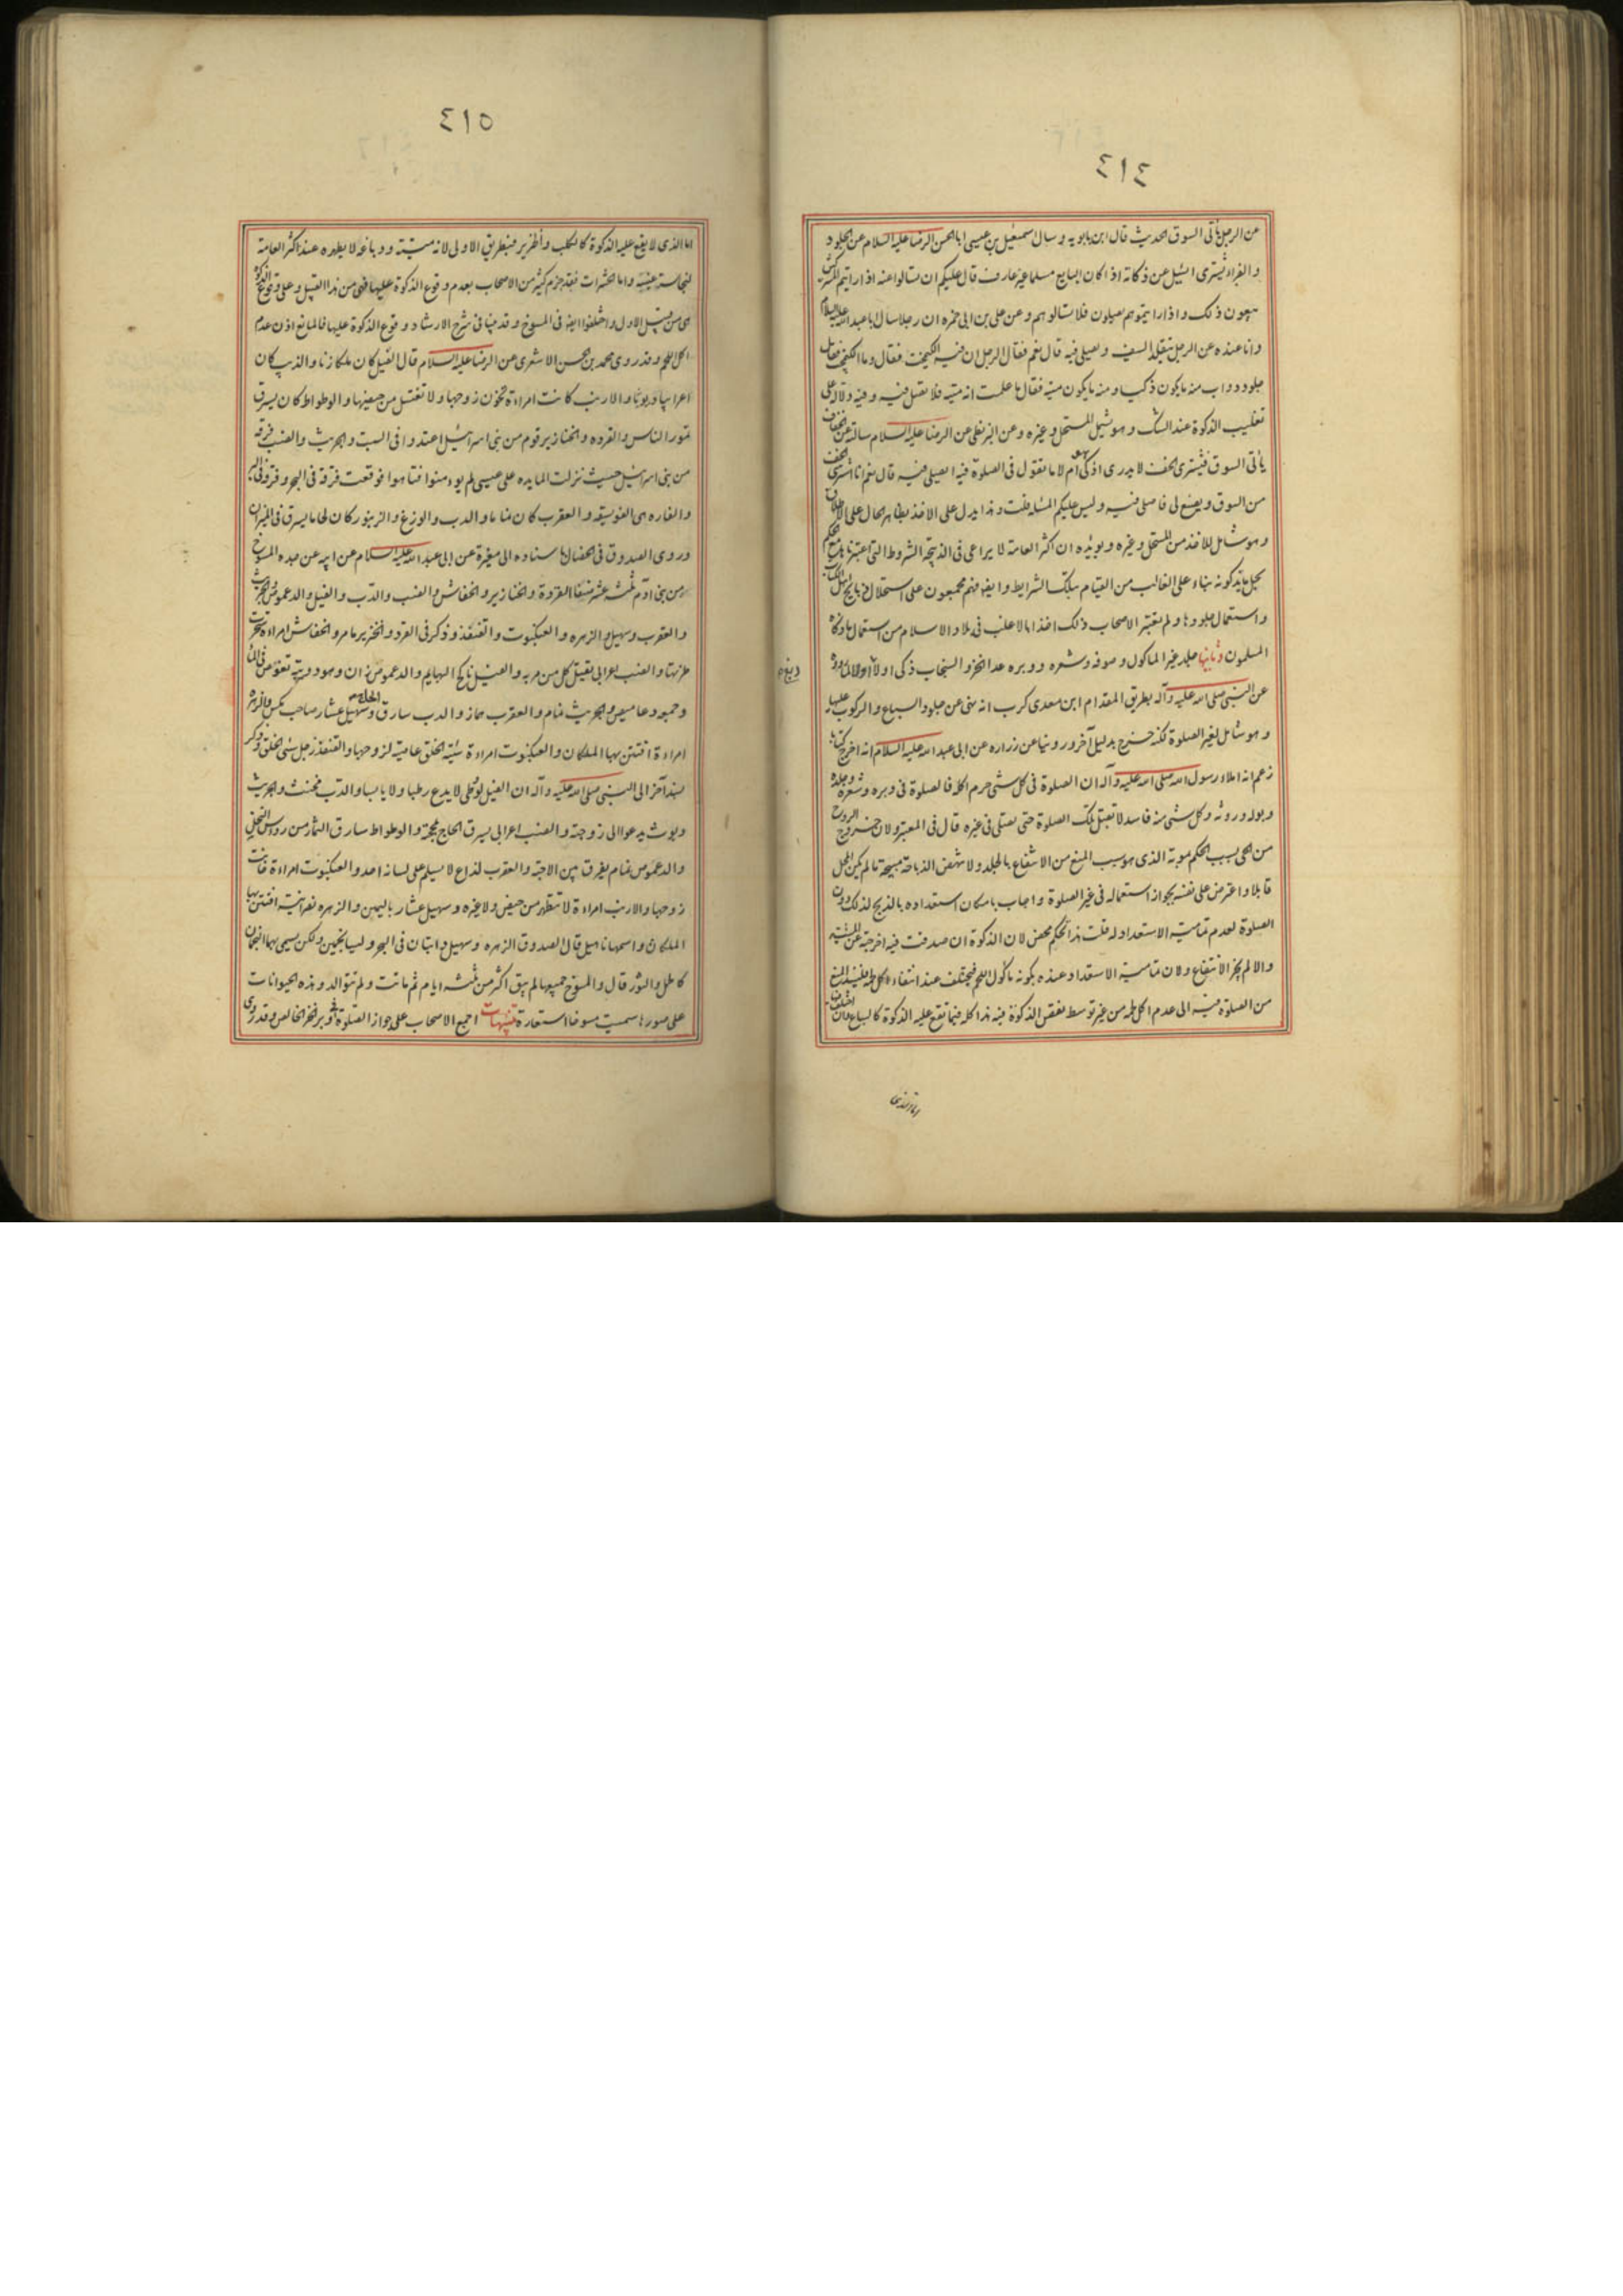 ٤١٤
عن الرجل يأتى السوق الحديث قال ابن بابويه و سال سمعيل بن عيسى ابا الحسن الرضا عليه السلام عن الجلود
و الفراء يشترى ايسئل عن ذكاته اذا كان البايع مسلما غير عارف قال عليكم ان تسالوا عنه اذا رايتم المشركين
يبيعون ذلك و اذا رايتموهم يصلون فلا تسالوهم و عن على بن ابى حمزه ان رجلا سال ابا عبد الله عليه السلام
و انا عنده عن الرجل يتقلد السيف و يصلى فيه قال نعم فقال الرجل ان فيه الكيمخت فقال و ما الكيمخت فقال
جلود دواب منه ما يكون ذكيا و منه ما يكون ميته فقال ما علمت انه ميتة فلا تصل فيه و فيه دلالة على
تغليب الذكوة عند الشك و هو يشمل المستحل و غيره و عن البزنطى عن الرضا عليه السلام سالته عن الخفاف
يأتى السوق فيشترى الخف لا يدرى اذكى هو ام لا ما تقول فى الصلوة فيه ايصلى فيه قال نعم انا اشترى الخف
من السوق و يصنع لى فاصلى فيه و ليس عليكم المسئلة قلت و هذا يدل على الاخذ بظاهر الحال على الاطلاق
و هو شامل للاخذ من المستحل و غيره و يويده ان اكثر العامة لا يراعى فى الذبيحة الشروط التى اعتبرناها مع الحكم
بحل ما يذكونه بناء على الغالب من القيام بتلك الشرايط و ايضا فهم مجمعون على استحلال ذبايح اهل الكتاب
و استعمال جلودها و لم يعتبر الاصحاب ذلك اخذا بالاغلب فى بلاد الاسلام من استعمال ما ذكاه
المسلمون و ثانيها جلد غير الماكول و صوفه و شعره و وبره عدا الخز و السنجاب ذكى اولا
عن النبى صلى الله عليه و آله بطريق المقدام ابن معدى كرب انه نهى عن جلود السباع و الركوب عليها
و هو شامل لغير الصلوة لكنه خرج بدليل آخر و روينا عن زراره عن ابى عبد الله عليه السلام انه اخرج كتابا
زعم انه املاء رسول الله صلى الله عليه و آله ان الصلوة فى كل شئى حرم اكله فالصلوة فى وبره و شعره و جلده
و بوله و روثه و كل شئى منه فاسد لا تقبل تلك الصلوة حتى تصلى فى غيره قال فى المعتبر و لان خروج الروح
من الحى سبب الحكم بموته الذى هو سبب المنع من الانتفاع بالجلد و لا تنهض الذباحة مبيحة ما لم يكن المحل
قابلا و اعترض على نفسه بجواز استعماله فى غير الصلوة و اجاب بامكان استعداده بالذبح لذلك دون
الصلوة لعدم تمامية الاستعداد له قلت هذا تحكم محض لان الذكوة ان صدقت فيه اخرجته عن الميتة
و الا لم يجز الانتفاع و لان تمامية الاستعداد عنده بكونه ماكول اللحم فيتخلف عند انتفاء اكل لحمه فليسند المنع
من الصلوة فيه الى عدم اكل لحمه من غير توسط نقص الذكوة فيه هذا كله فيما تقع عليه الذكوة كالسباع
اما الذى
٤١٥
اما الذى لا يقع عليه الذكوة كالكلب و الخنزير فبطريق الاولى لانه ميتة و دباغه لا يطهره عند اكثر العامة
لنجاسة عينه و اما الحشرات فقد جزم كثير من الاصحاب بعدم وقوع الذكوة عليها فهى من هذا القبيل و على وقوع الذكوة
هى من قبيل الاول و اختلفوا ايضا فى المسوخ و قد بينا فى شرح الارشاد وقوع الذكوة عليها فالمانع اذن عدم
اكل اللحم و قد روى محمد بن الحسن الاشعرى عن الرضا عليه السلام قال الفيل كان ملكا زناء و الذئب كان
اعرابيا ديوثا و الارنب كانت امراءة تخون زوجها و لا تغتسل من حيضها و الوطواط كان يسرق
تمور الناس و القرده و الخنازير قوم من بنى اسرائيل اعتدوا فى السبت و الجريث و الضب فرقة
من بنى اسرائيل حيث نزلت المايده على عيسى لم يومنوا فتاهوا فوقعت فرقة فى البحر و فرقة فى البر
و الفاره هى الفويسقه و العقرب كان نماما و الدب و الوزغ و الزنبور كان لحاما يسرق فى الميزان
و روى الصدوق فى الخصال باسناده الى مغيرة عن ابى عبد الله عليه السلام عن ابيه عن جده المسوخ
من بنى آدم ثلثه عشر صنفا القردة و الخنازير و الخفاش و الضب و الدب و الفيل و الدعموص و الجريث
و العقرب و سهيل و الزهره و العنكبوت و القنفذ و ذكر فى القرد و الخنزير ما مر و الخفاش امراءة سحرت
ظئرتها و الضب اعرابى يقتل كل من مر به و الفيل ناكح البهايم و الدعموص زان
و الجريث نمام و العقرب هماز و الدب سارق الحاج و سهيل عشار صاحب مكس و الزهرة
امراءة افتتن بها الملكان و العنكبوت امراءة سيئة الخلق عاصية لزوجها و القنفذ رجل سئى الخلق و ذكر
بسند آخر الى النبى صلى الله عليه و آله ان الفيل لوطى لا يدع رطبا و لا يابسا و الدب مخنث و الجريث
ديوث يدعوا الى زوجته و الضب اعرابى يسرق الحاج بمحجنه و الوطواط سارق الثمار من رؤس النخل
و الدعموص نمام يفرق بين الاحبة و العقرب لذاع لا يسلم على لسانه احد و العنكبوت امراءة خانت
زوجها و الارنب امراءة لا تتطهر من حيض و لا غيره و سهيل عشار باليمن و الزهره نصرانية افتتن بها
الملكان و اسمها ناهيل قال الصدوق الزهره و سهيل دابتان فى البحر و ليسا بنجمين و لكن يسمى بهما النجمان
كالحمل و الثور قال و المسوخ جميعها لم يبق اكثر من ثلثه ايام ثم ماتت و لم تتوالد و هذه الحيوانات
على صورها سميت مسوخا استعارة تنبيهات اجمع الاصحاب على جواز الصلوة فى وبر الخز الخالص و قد روى